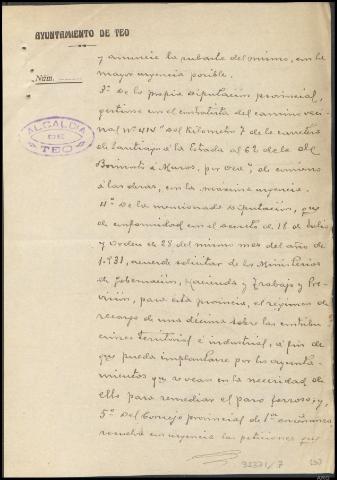 AYUNTAMIENTO DE TEO
Núm.
ALCALDIA
DE
TEO
y anuncie la subasta del mismo, con la
mayor urgencia posible.
3º De la propia Diputación provincial,
gestione con el contratista del camino veci-
nal nº 414 del Kilometro 7 de la carretera
de Santiago á la Estrada al 62 de la de
á Muros, por de comienzo
á las obras, con la maxima urgencia.
4º De la mencionada Diputación, que
de conformidad con el decreto de 18 de Julio
y orden de 28 del mismo mes del año de
1.931, acuerde solicitar de los Ministerios
de Gobernación, Hacienda y Trabajo y Pre-
visión, para esta provincia, el régimen de
recargo de una décima sobre las contribu-
ciones territorial é industrial, á fin de
que pueda implantarse por los ayunta-
mientos que se vean en la necesidad de
ello para remediar el paro forzoso, y,
5º Del Consejo provincial de 1ª enseñanza
resuelva con urgencia las peticiones que